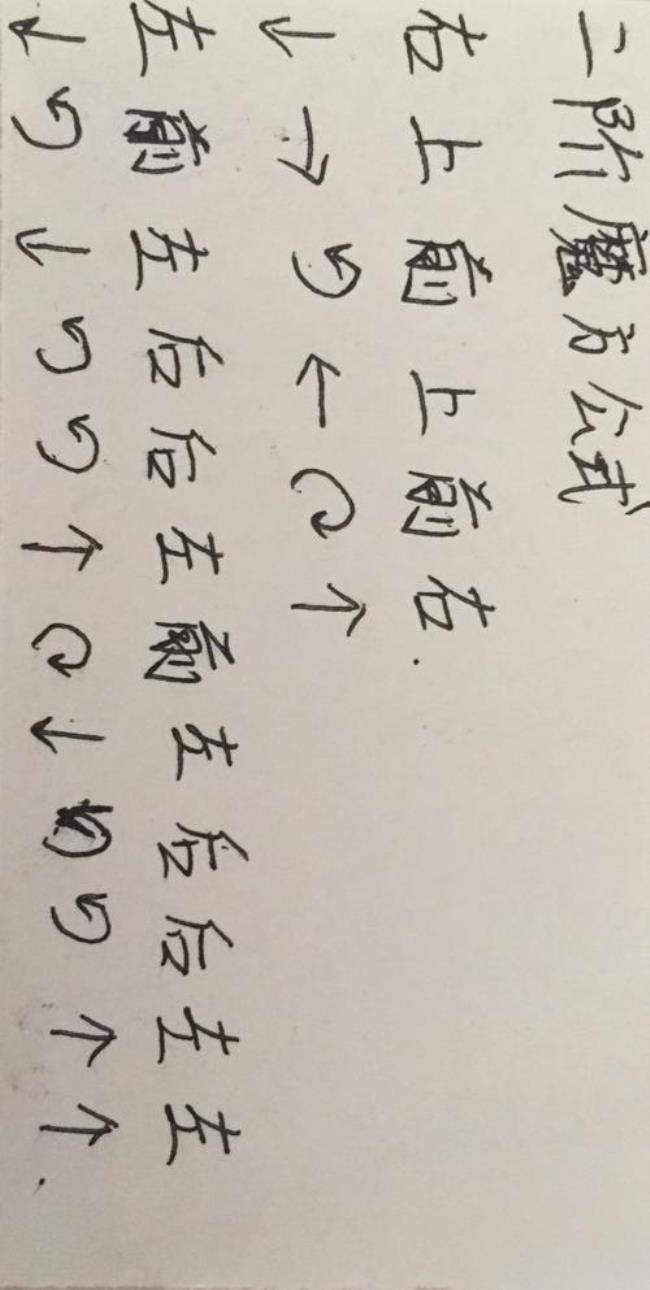 二阶魔方公式
右上前上前右.
↓ → ↺ ← ↻ ↑
左前左后后左前左后后左左
↓ ↺ ↓ ↺ ↺ ↑ ↻ ↓ ↺ ↺ ↑ ↑.